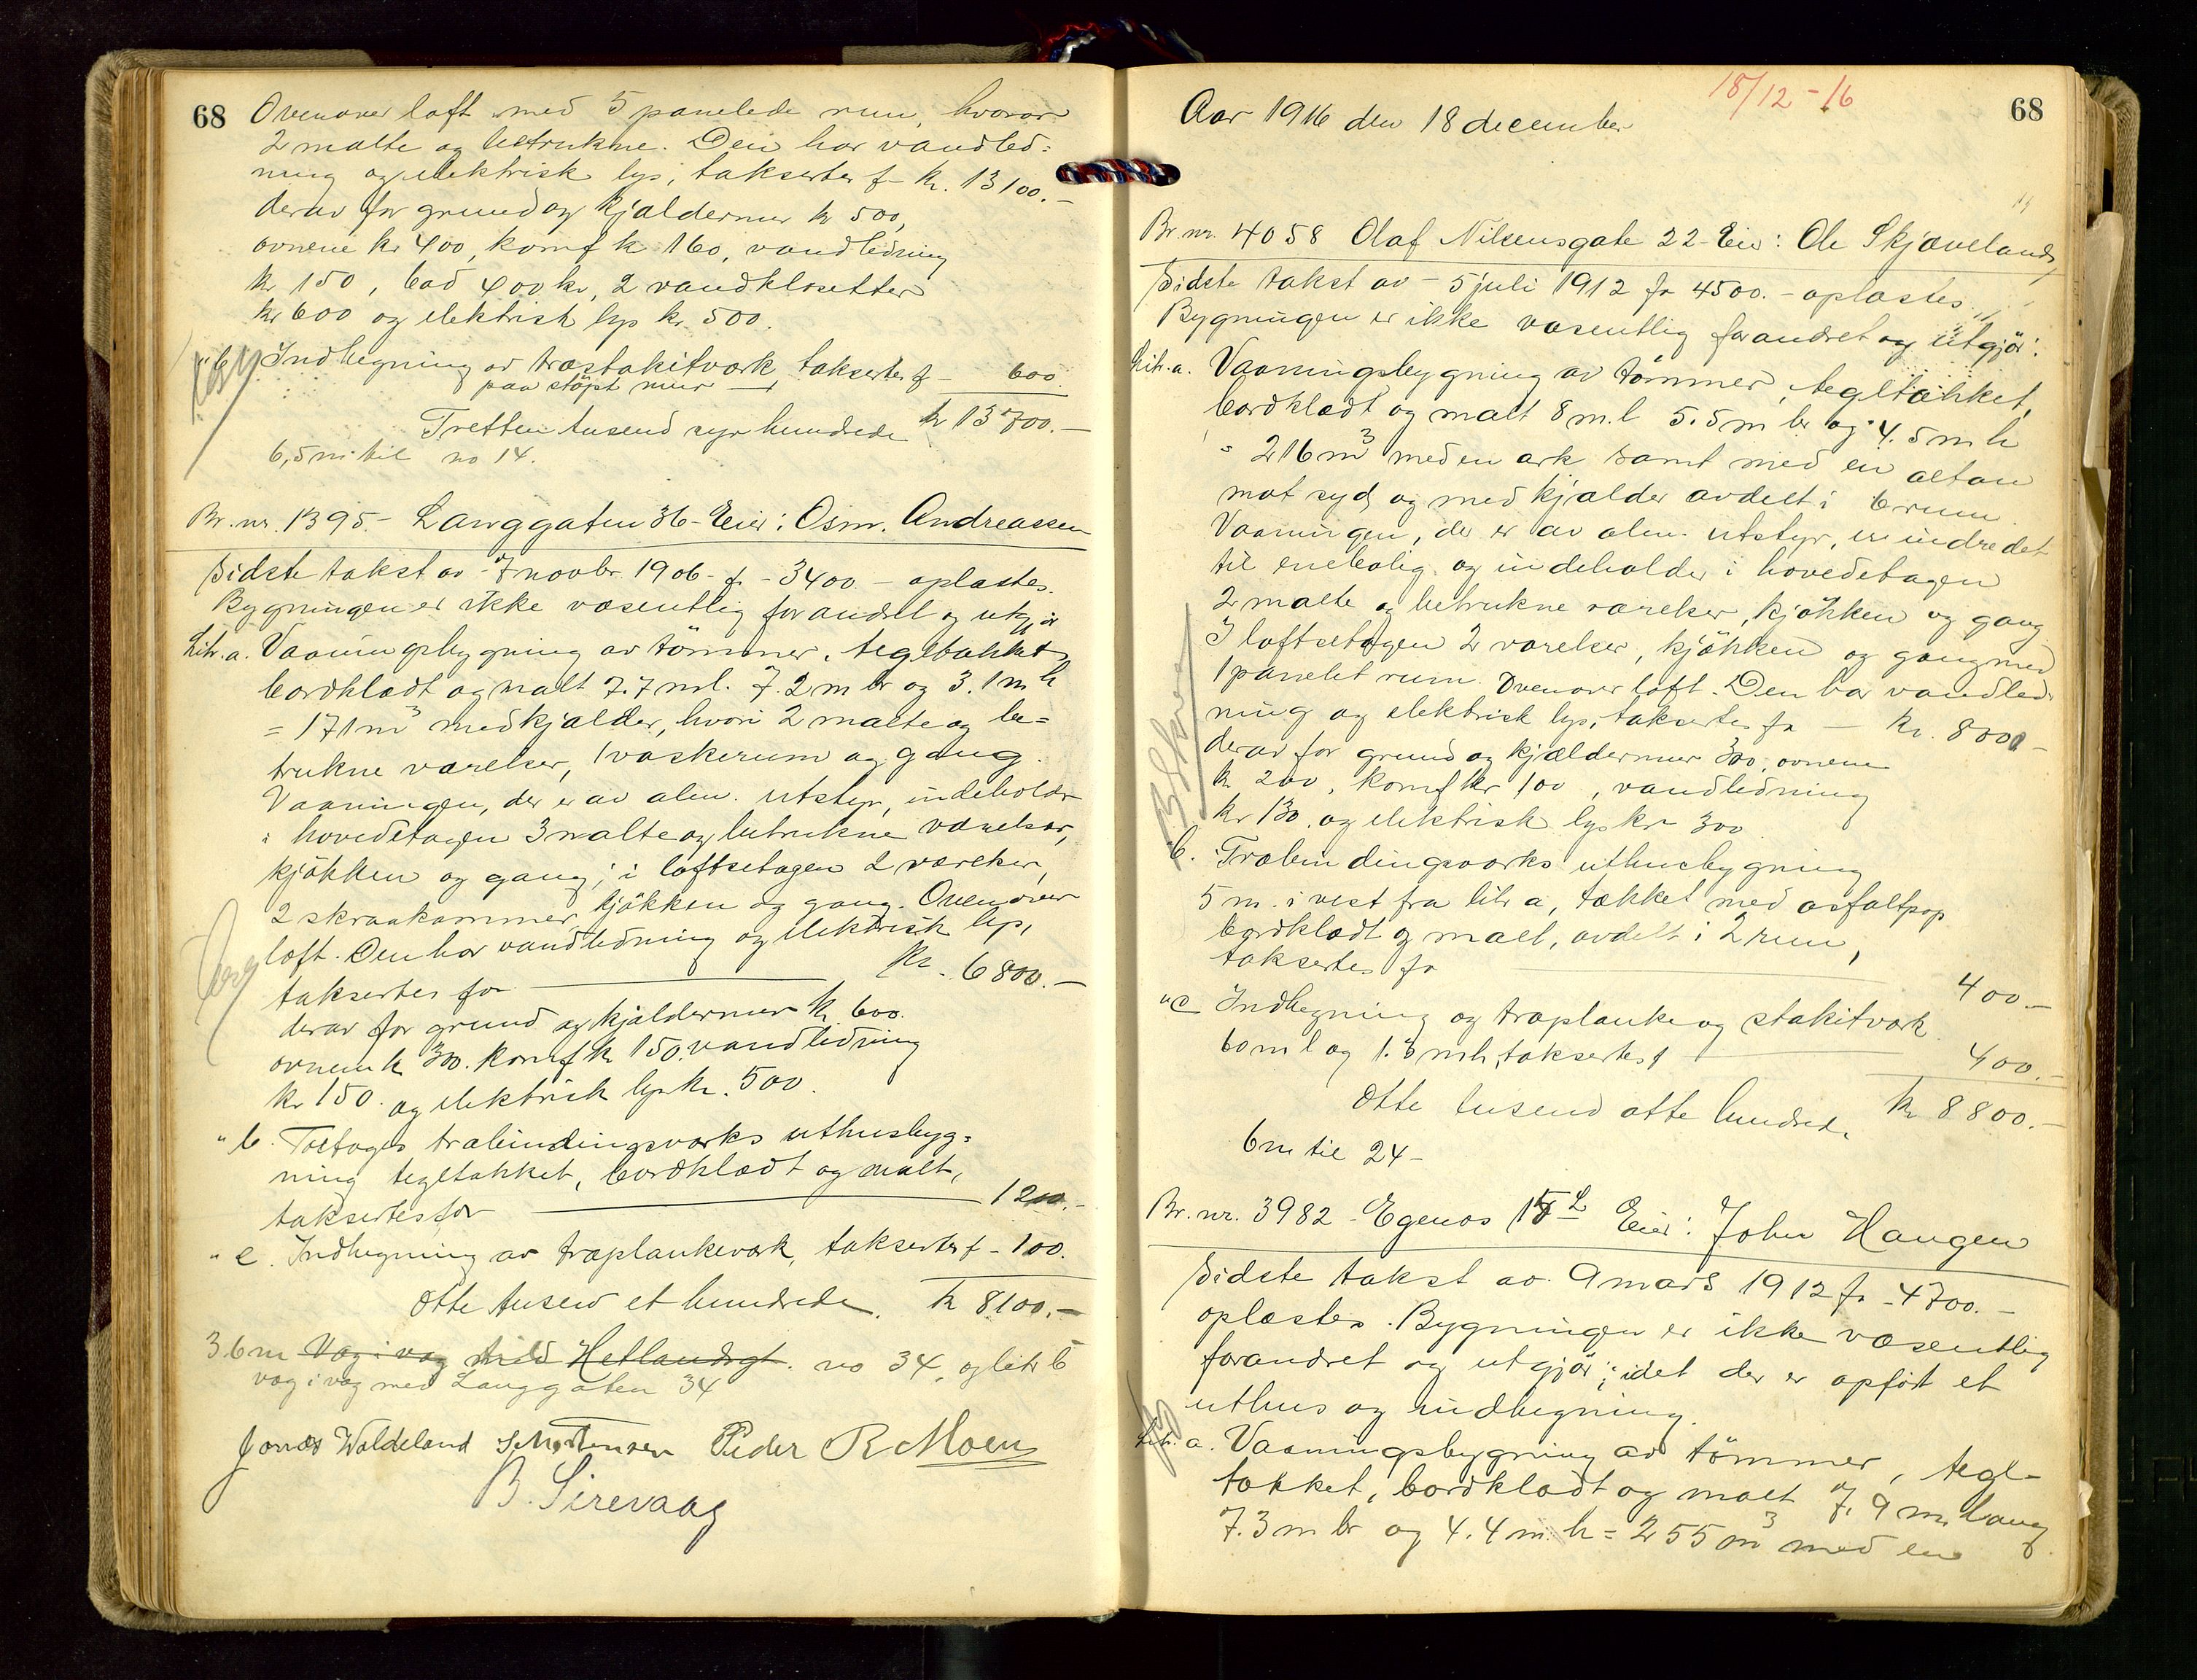 68
Ovenover loft med 5 panelede rum, hvorav
2 malte og betrukne. Den har vandled=
ning og elektrisk lys, taksertes f- kr. 13100.-
derav for grund og kjældermur kr 500,
ovnene kr 400, komf k 160, vandledning
kr 150, bad 400 kr, 2 vandklosetter
kr 600 og elektrisk lys kr. 500.
" b. Indhegning av træstakitværk taksertes f - 600.
paa støpt mur
Tretten tusend syv hundrede kr 13700.-
6,5 m til no 14.
Br. nr. 1395.- Langgaten 36 - Eier: Osm. Andreassen
Sidste takst av 7 novbr. 1906 - fr - 3400 - oplæstes.
Bygningen er ikke væsentlig forandret og utgjør
Litr. a. Vaaningsbygning av tømmer, tegltækket,
bordklædt og malt 7.7 m l. 7.2 m br og 3.1 m h
= 171 m³ med kjælder, hvori 2 malte og be=
trukne værelser, 1 vaskerum og gang.
Vaaningen, der er av alm. utstyr, indeholder
i hovedetagen 3 malte og betrukne værelser,
kjøkken og gang; i loftsetagen 2 værelser,
2 skraakammer, kjøkken og gang. Ovenover
loft. Den har vandledning og elektrisk lys,
taksertes for kr. 6800.-
derav for grund og kjældermur kr 600.
ovnene k 300. komf k 150. vandledning
kr 150. og elektrisk lys kr. 500.
" b. Toetages træbindingsværks uthusbyg=
ning tegltækket, bordklædt og malt,
taksertes for 1200.-
" c. Indhegning av træplankeværk, taksertes f - 100.
Otte tusen et hundrede. kr 8100.-
3.6 m Væg i væg med Hetlandsgt. no 34, og litr b
væg i væg med Langgaten 34
Jonas Waldeland S. Mortensen Peder R Moen
B. Sirevaag
18/12-16
68
Aar 1916 den 18 december
Br. nr. 4058 Olaf Nilsensgate 22 - Eier: Ole Skjæveland
Sidste takst av - 5 juli 1912 fr 4500. - oplæstes
Bygningen er ikke væsentlig forandret og utgjør:
Litr. a. Vaaningsbygning av tømmer, tegltækket,
bordklædt og malt 8 m. l 5.5 m br og 4.5 m h
= 216 m³ med en ark samt med en altan
mot syd og med kjælder avdelt i 6 rum.
Vaaningen, der er av alm. utstyr, er indredet
til enebolig og indeholder i hovedetagen
2 malte og betrukne værelser, kjøkken og gang
I loftsetagen 2 værelser, kjøkken og gang med
1 panelet rum. Ovenover loft. Den har vandled=
ning og elektrisk lys, taksertes fr - kr. 8000-
derav for grund og kjældermur 300, ovnene
kr. 200, komf kr 100, vandledning
kr 130. og elektrisk lys kr 300
" b. Træbindingsværks uthusbygning
5 m. i vest fra litr a, tækket med asfaltpap
bordklædt og malt, avdelt i 2 rum,
taksertes fr 400.-
" c Indhegning og træplanke og stakitværk
60 m l og 1.3 m h, taksertes f 400.-
Otte tusend otte hundrede kr 8800.-
6 m til 24-
Br. nr. 3982 - Egenæs 15 L Eier: John Haugen
Sidste takst av. 9 mars 1912 fr - 4700.-
oplæstes. Bygningen er ikke væsentlig
forandret og utgjør; idet der er opført et
uthus og indhegning.
Litr. a. Vaaningsbygning av tømmer, tegl-
tækket, bordklædt og malt 7.9 m lang
7.3 m br og 4.4 m. h = 255 m³ med en